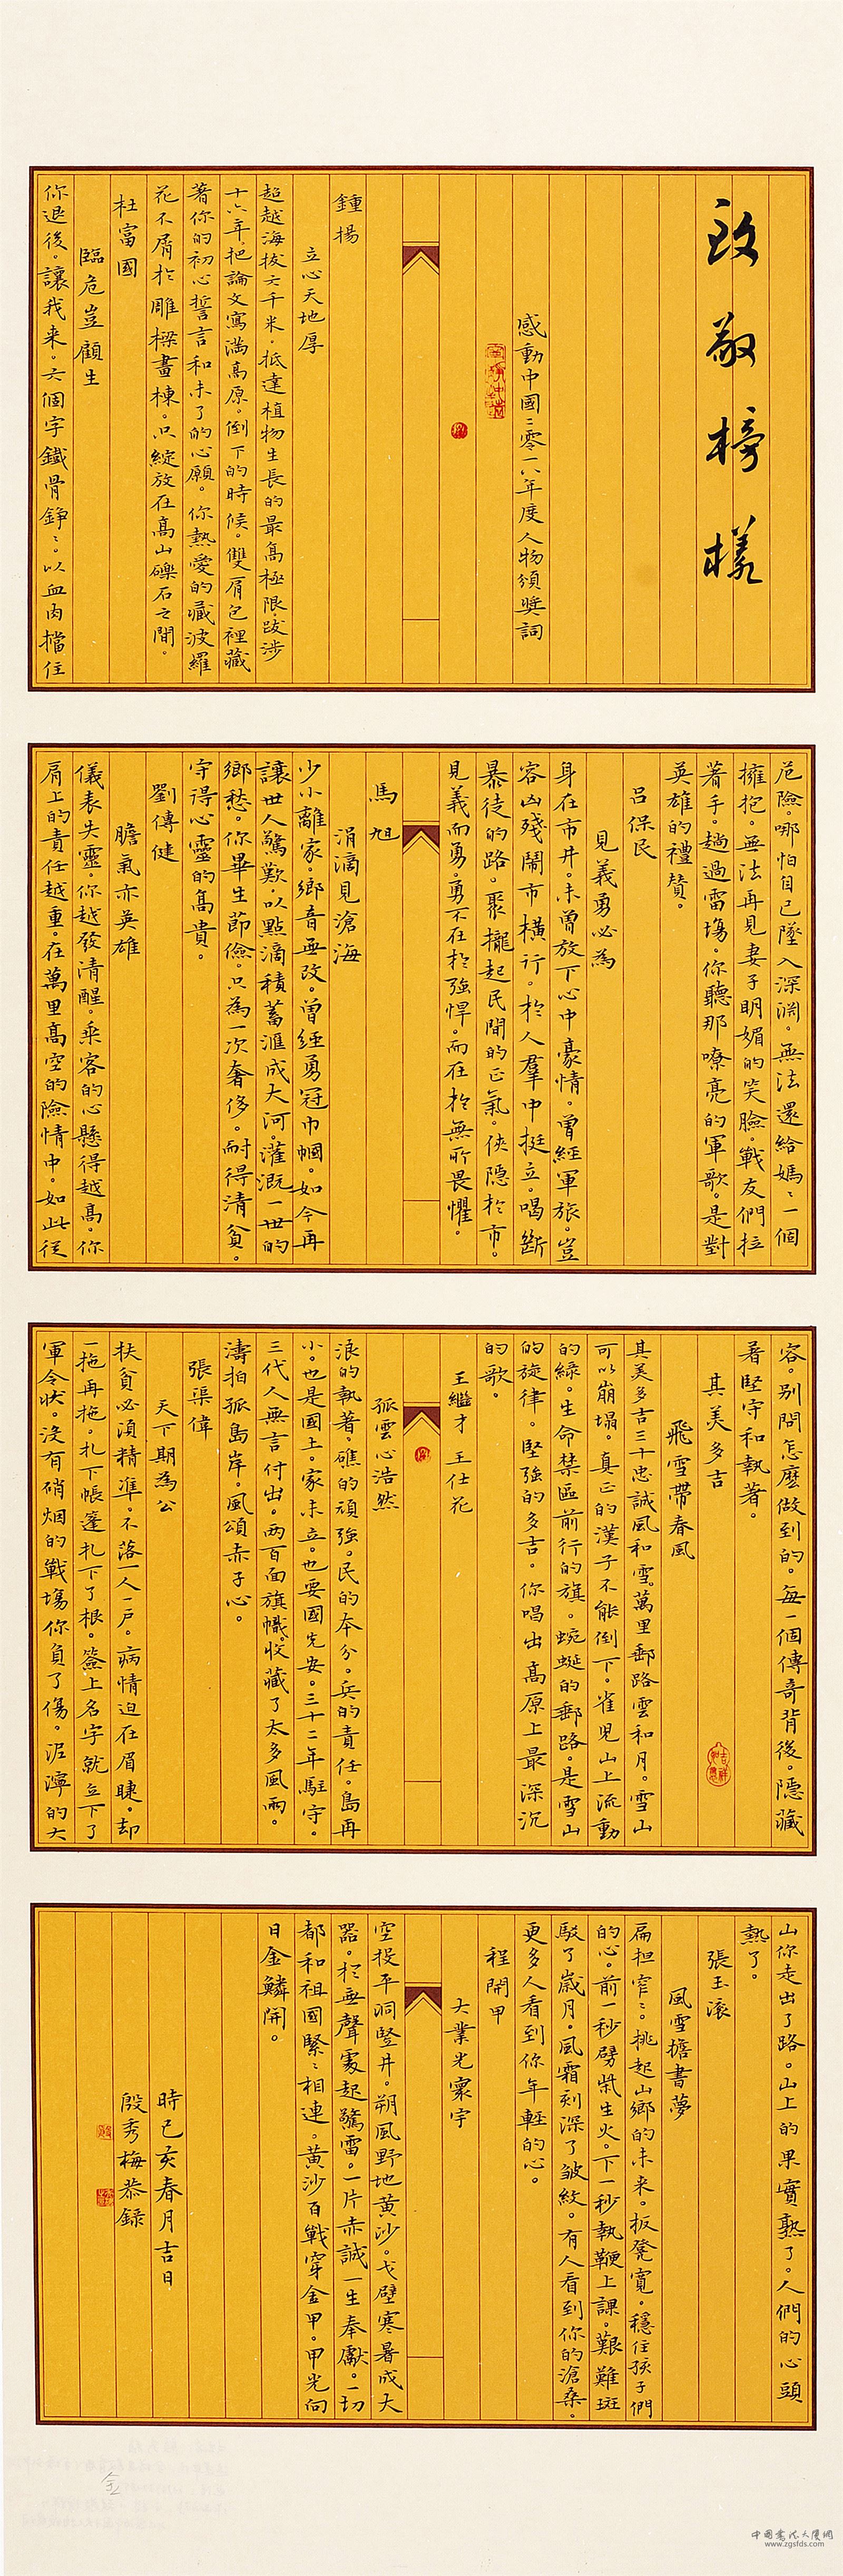 致敬榜樣
感動中國二零一八年度人物頒獎詞
鍾揚
立心天地厚
超越海拔六千米。抵達植物生長的最高極限。跋涉
十六年。把論文寫滿高原。倒下的時候。雙肩包裡藏
著你的初心誓言和未了的心願。你熱愛的藏波羅
花不屑於雕樑畫棟。只綻放在高山礫石之間。
杜富國
臨危豈顧生
你退後。讓我来。六個字鐵骨錚〻。以血肉擋住
危險。哪怕自己墜入深淵。無法還給媽〻一個
擁抱。無法再見妻子明媚的笑臉。戰友們拉
著手。趟過雷場。你聽那嘹亮的軍歌。是對
英雄的禮贊。
吕保民
見義勇必為
身在市井。未曾放下心中豪情。曾經軍旅。豈
容凶殘鬧市橫行。於人羣中挺立。喝斷
暴徒的路。聚攏起民間的正氣。俠隱於市。
見義而勇。勇不在於強悍。而在於無所畏懼。
馬旭
涓滴見滄海
少小離家。鄉音無改。曾經勇冠巾幗。如今再
讓世人驚歎。以點滴積蓄滙成大河。灌溉一世的
鄉愁。你畢生節儉。只為一次奢侈。耐得清貧。
守得心靈的高貴。
劉傳健
膽氣亦英雄
儀表失靈。你越發清醒。乘客的心懸得越高。你
肩上的責任越重。在萬里高空的險情中。如此從
容。別問怎麼做到的。每一個傳奇背後。隱藏
着堅守和執著。
其美多吉
飛雪帶春風
其美多吉三十忠誠風和雪。萬里郵路雲和月。雪山
可以崩塌。真正的漢子不能倒下。雀兒山上流動
的綠。生命禁區前行的旗。蜿蜒的郵路。是雪山
的旋律。堅強的多吉。你唱出高原上最深沉
的歌。
王繼才 王仕花
孤雲心浩然
浪的執著。礁的頑強。民的本分。兵的責任。島再
小。也是國土。家未立。也要國先安。三十二年駐守。
三代人無言付出。兩百面旗幟。收藏了太多風雨。
濤拍孤島岸。風頌赤子心。
張渠偉
天下期為公
扶貧必須精準。不落一人一戶。病情迫在眉睫。却
一拖再拖。扎下帳篷扎下了根。簽上名字就立下了
軍令狀。沒有硝烟的戰場你負了傷。泥濘的大
山你走出了路。山上的果實熟了。人們的心頭
熱了。
張玉滾
風雪擔書夢
扁担窄〻。挑起山鄉的未来。板凳寬。穩住孩子們
的心。前一秒劈柴生火。下一秒執鞭上課。艱難斑
駁了歲月。風霜刻深了皺紋。有人看到你的滄桑。
更多人看到你年輕的心。
程開甲
大業光寰宇
空投平洞豎井。朔風野地黄沙。戈壁寒暑成大
器。於無聲處起驚雷。一片赤誠一生奉獻。一切
都和祖國緊〻相連。黄沙百戰穿金甲。甲光向
日金鱗開。
時己亥春月吉日
殷秀梅恭錄
中国書法大廈網
www.zgsfds.com